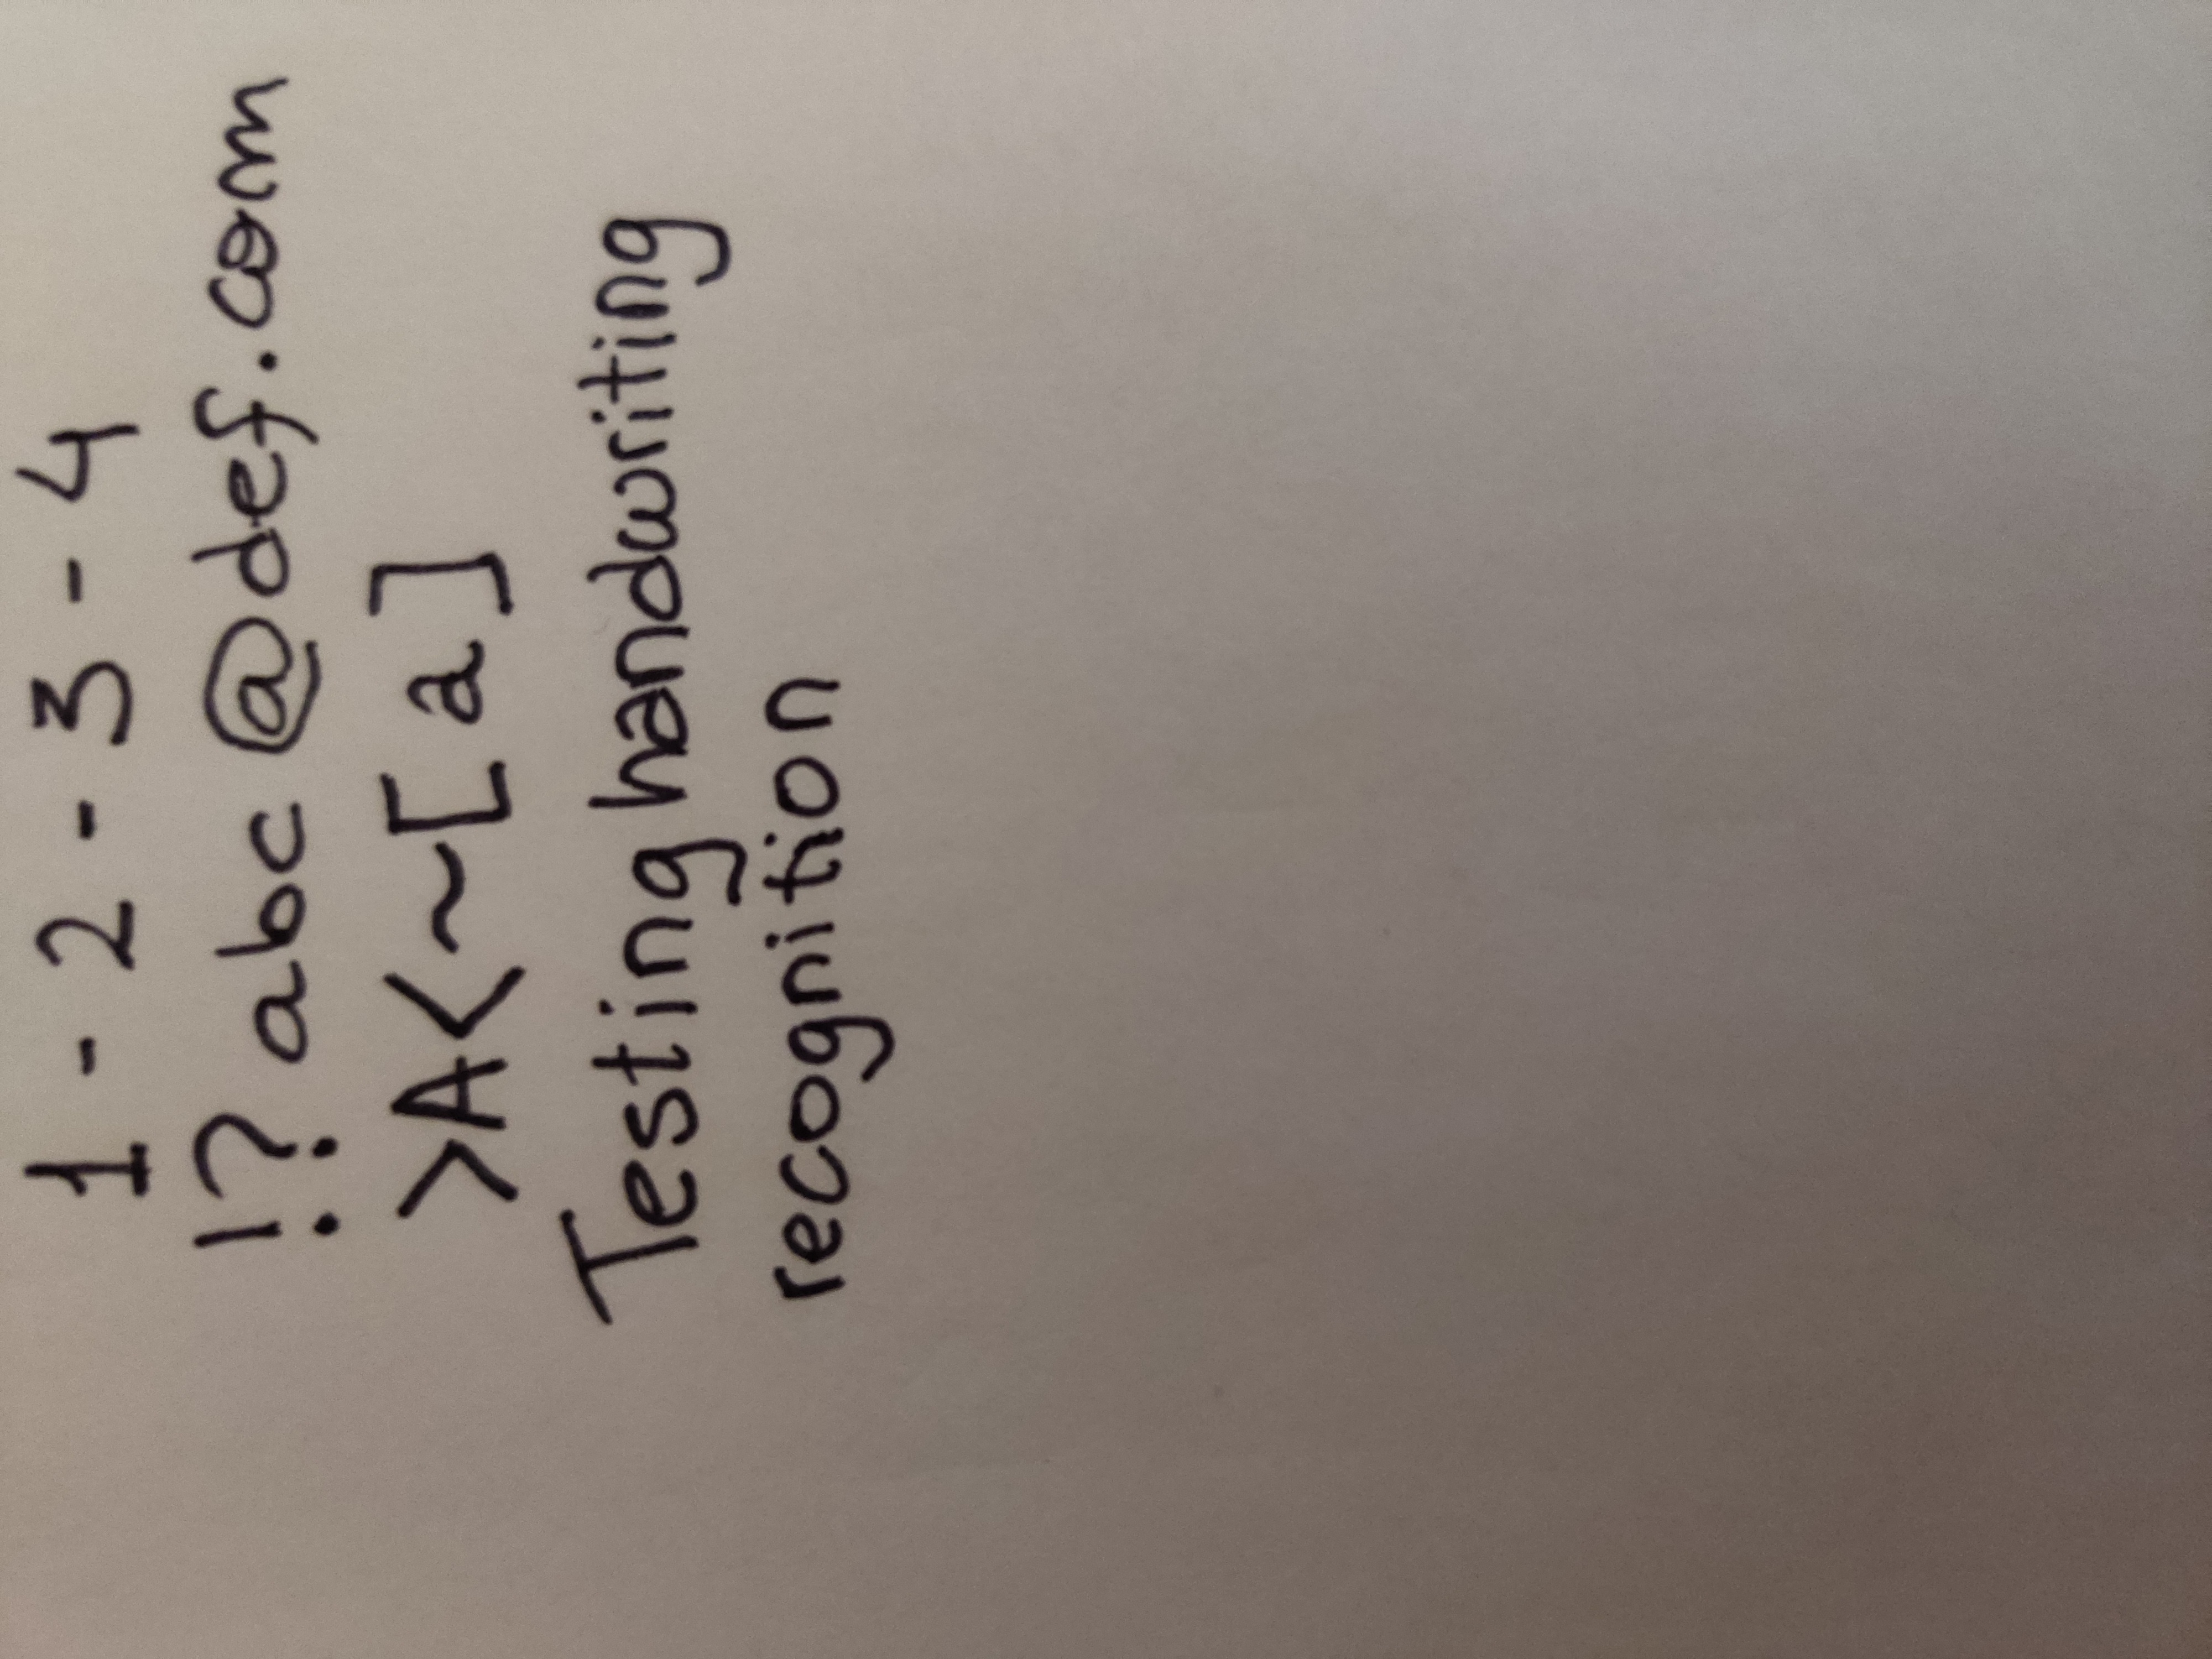 1 - 2 - 3 - 4
!? abc@def.com
>A<~[a]
Testing handwriting
recognition